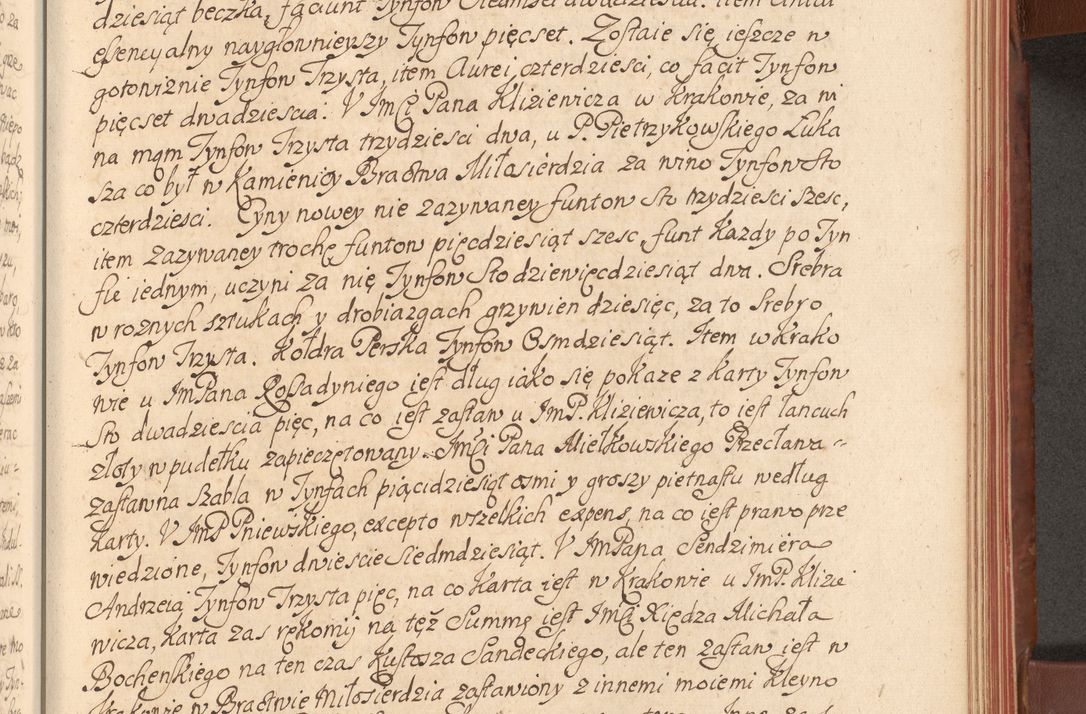 dziesiąt beczka, faciunt Tynfow Siedmset dwadziescia. Item
esencyalny naygłownieyszy Tynfow pięcset. Zostaie się ieszcze w
gotowiznie Tynfow Trzysta, item Aurei czterdziesci, co facit Tynfow
pięcset dwadziescia. V JmCi Pana Kliziewicza w Krakowie, za wi
na mam Tynfow Trzysta trzydziesci dwa, u P. Pietrzykowskiego Luka
sza co był w Kamienicy Bractwa Miłosierdzia za wino Tynfow Sto
czterdziesci. Cyny nowey nie zazywaney funtow Sto trzydziesci szesc,
item zazywaney trochę funtow pięcdziesiąt szesc, funt Kazdy po Tyn
fie iednym, uczyni za nię Tynfow Sto dziewięcdziesiąt dwa. Srebra
w roznych sztukach y drobiazgach grzywien dziesięc, za to Srebro
Tynfow Trzysta. Kołdra Perska Tynfow Osmdziesiąt. Item w Krako
wie u JmPana Rosadyniego iest dług iako się pokaze z Karty Tynfow
Sto dwadziescia pięc, na co iest zastaw u JmP. Kliziewicza, to iest łancuch
złoty w pudełku zapieczętowany. JmCi Pana Mielkowskiego Przecława
zastawna Szabla w Tynfach piącidziesiąt osmi y groszy piętnastu według
Karty. V JmP Pniewskiego, excepto wszelkich expens, na co iest prawo prze
wiedzione, Tynfow dwiescie Siedmdziesiąt. V JmPana Sendzimiera
Andrzeia Tynfow Trzysta pięc, na co Karta iest w Krakowie u JmP. Klizie
wicza, Karta zas rękomij na tęż Summę iest JmCi Xiędza Michała
Bochenskiego na ten czas Kustosza Sandeckiego, ale ten zastaw iest w
Krakowie w Bractwie Miłosierdzia zastawiony z innemi moiemi Kleyno